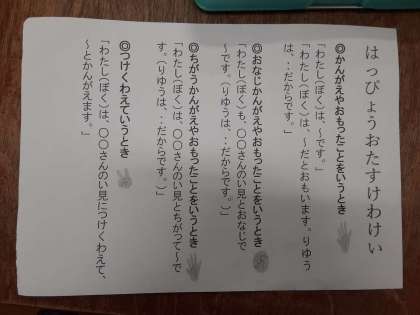 はっぴょうおたすけわけい
◎かんがえやおもったことをいうとき
「わたし(ぼく)は、～です。」
「わたし(ぼく)は、～だとおもいます。りゆう
は、・・だからです。」
◎おなじかんがえやおもったことをいうとき
「わたし(ぼく)も、〇〇さんのい見とおなじで
～です。(りゆうは、・・だからです。)」
◎ちがうかんがえやおもったことをいうとき
「わたし(ぼく)は、〇〇さんのい見とちがって～で
す。(りゆうは、・・だからです。)」
◎つけくわえていうとき
「わたし(ぼく)は、〇〇さんのい見につけくわえて、
～とかんがえます。」